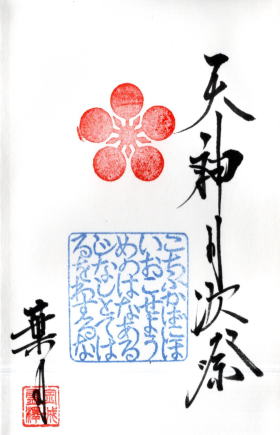 天神月次祭
こちふかばにほ
いおこせよう
めのはなある
じなしとては
るをわするな
葉月
金城
霊澤